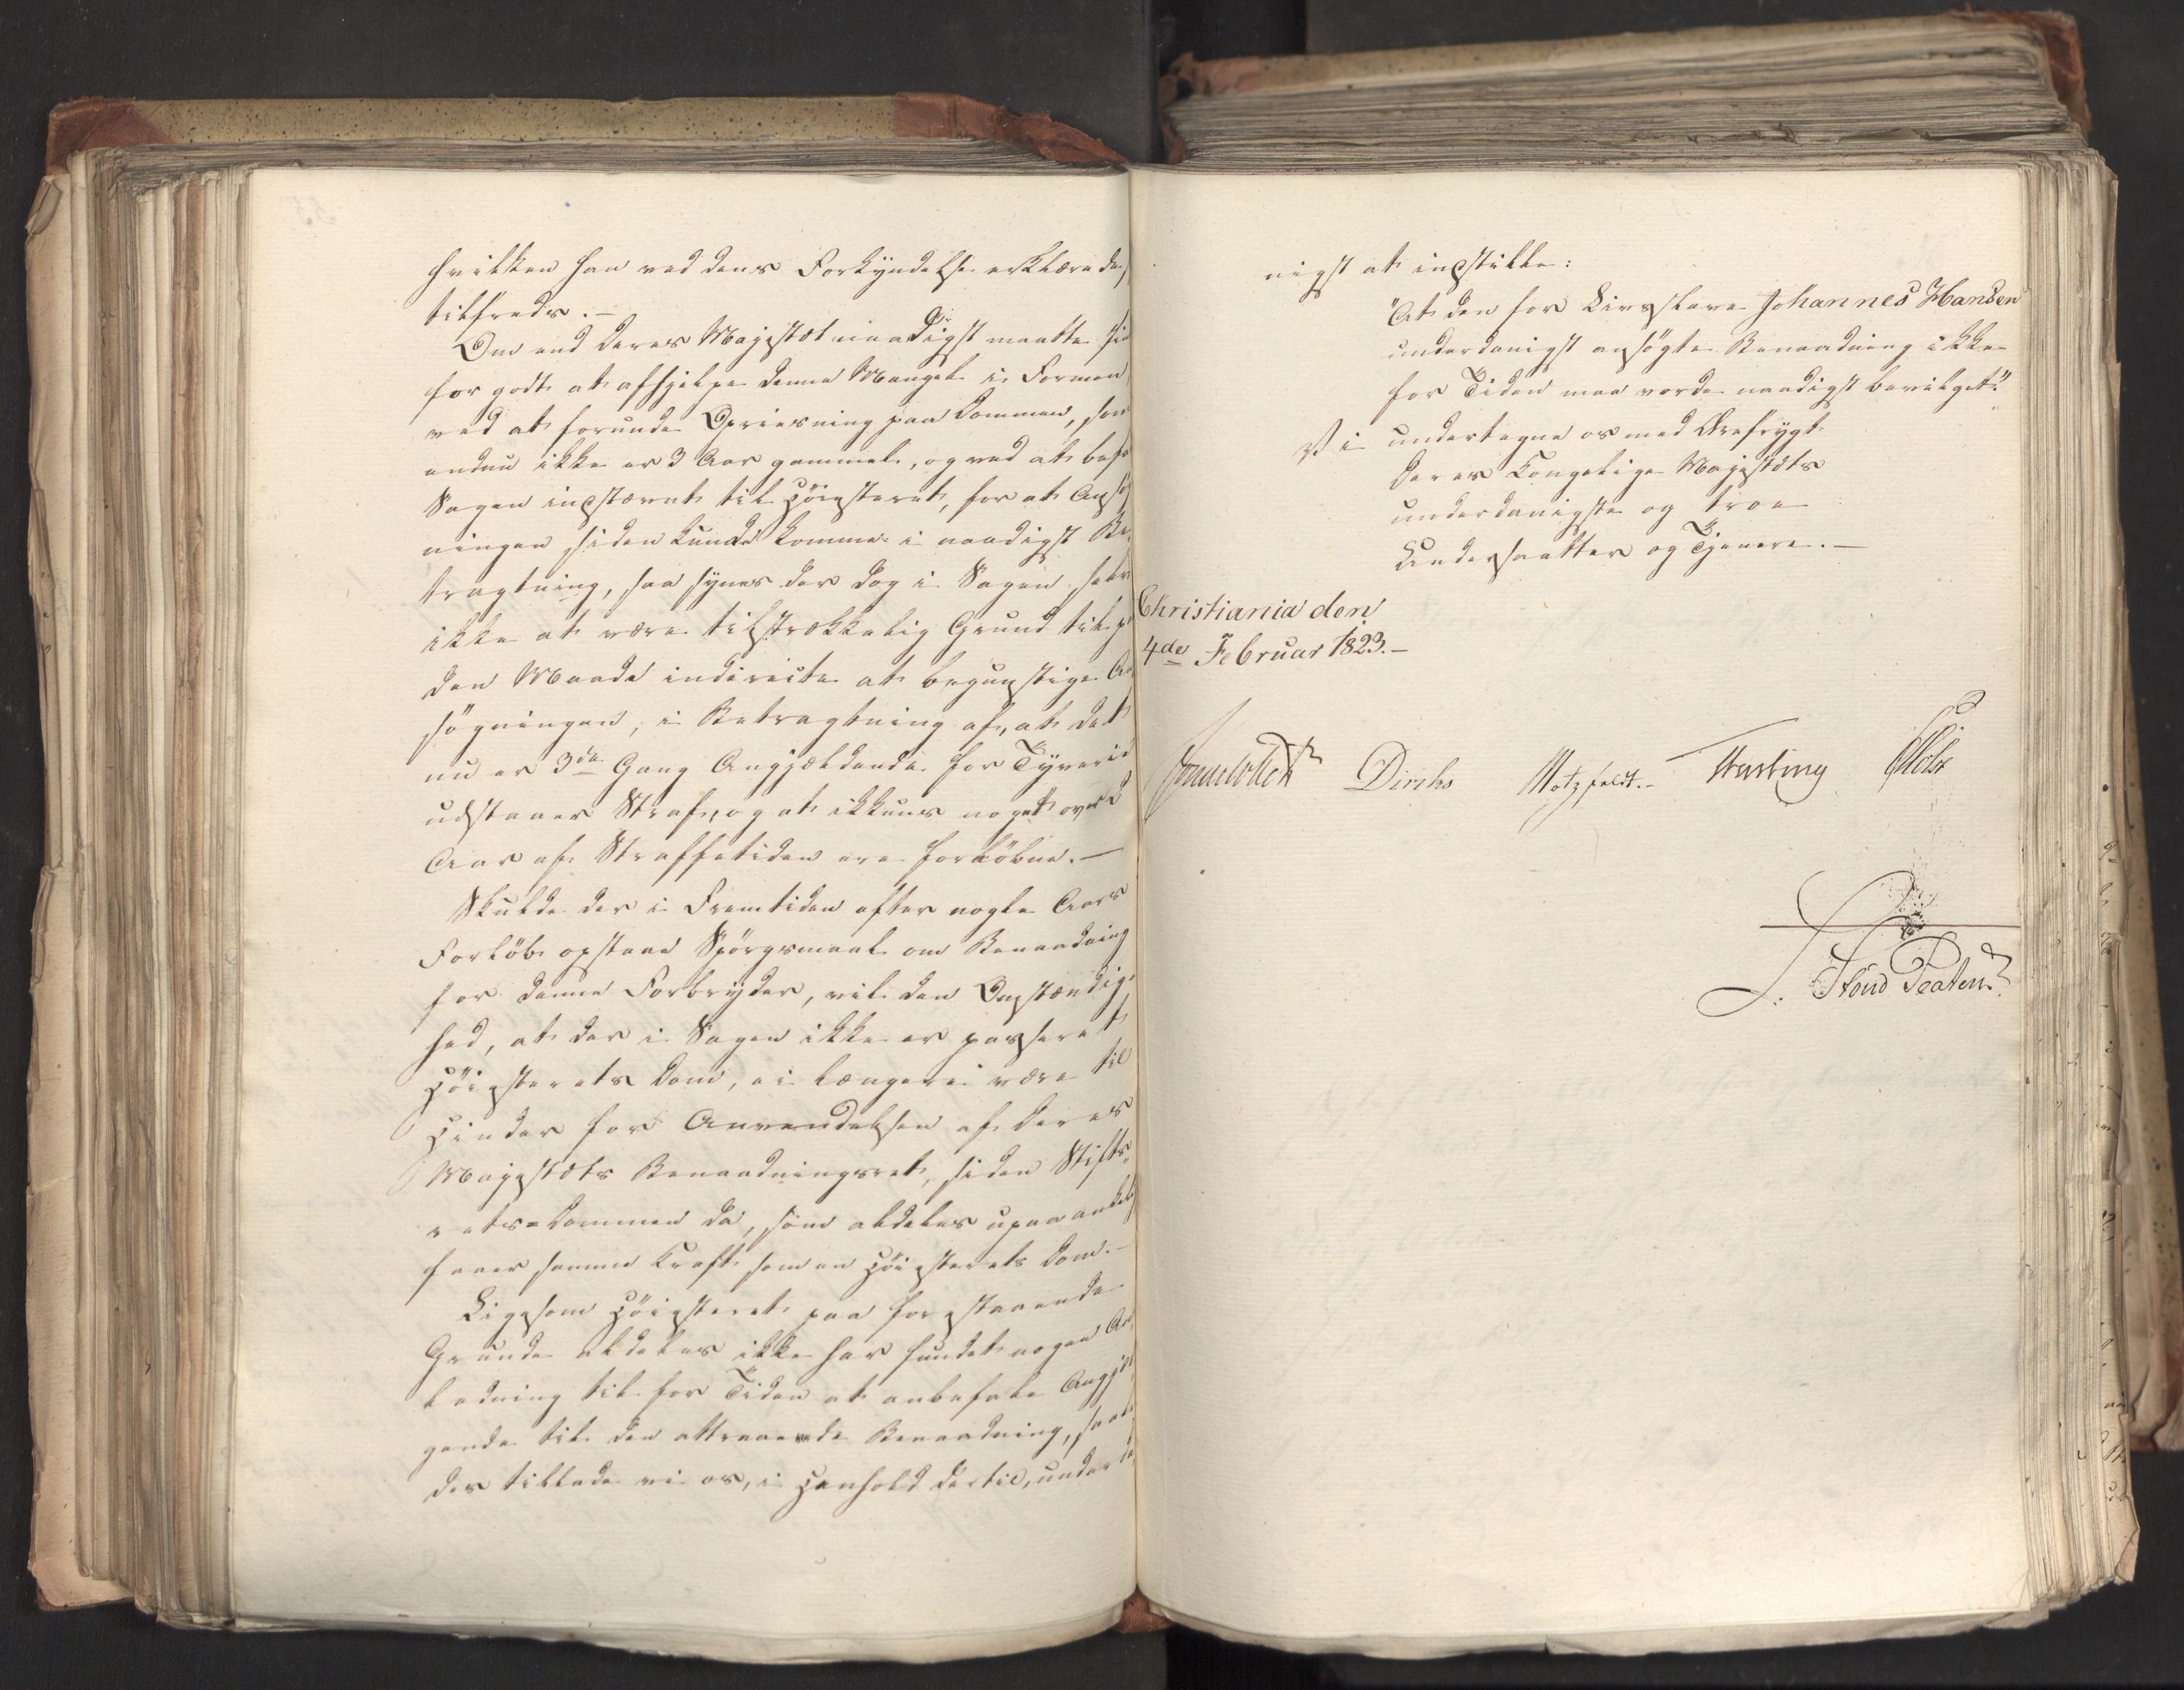 hvilken han ved dens Forkyndelse erklærede
tilfreds.—
Om end Deres Majestæt naadigst maatte fin
for godt at afhjelpe denne Mangel i Formen
ved at forunde Opreisning paa Dommen, som
endnu ikke er 3 Aar gammel, og ved at befa
Sagen indstævnt til Höiesteret, for at Ansö
ningen siden kunde komme i naadigst Be
tragtning, saa synes der dog i Sagen selv
ikke at være tilstrækkelig Grund til p
den Maade indirecte at begunstige An
søgningen, i Betragtning af, at det
nu er 3de Gang Angjældende for Tyverie
udstaaer Straf, og at ikkuns noget over 2
Aar af Straffetiden ere forløbne.—
Skulde der i Fremtiden efter nogle Aars
Forløb opstaae Spørgsmaal om Benaadning
for denne Forbryder, vil den Omstændig-
hed, at der i Sagen ikke er passeret
Höiesterets Dom, ei længere være til
Hinder for Anvendelsen af Deres
Majestæts Benaadningsret, siden Stifts-
rets-Dommen da, som aldeles upaaankelig
faaer samme Kraft som en Höiesterets Dom.—
Ligesom Höiesteret paa foranstaaende
Grunde aldeles ikke har fundet nogen An-
ledning til for Tiden at anbefale Angjæl
gende til den attraaende Benaadning, saa
der tillade vi os, i Henhold dertil, underda
nigst at indstille:
"At den for Livsslave Johannes Hansen
underdanigst ansøgte Benaadning ikke
for Tiden maa vorde naadigst bevilget."
Vi undertegne os med Ærefrygt
Deres Kongelige Majestæts
underdanigste og troe
Undersaatter og Tjenere.—
Christiania den
4de Februar 1823.—
Sommerhielm Diriks Motzfeldt.— Krebs
Röno Platou